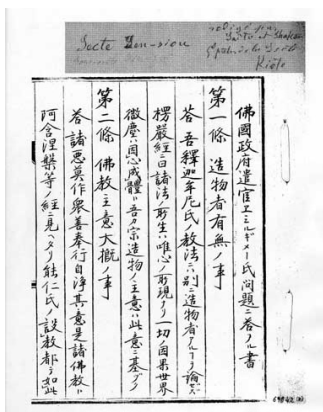 Secte Zen-siou
rédigé par
佛國政府遣官エミルギメー氏問題ニ答フル書
第一條 造物者有無ノ事
答 吾釋迦牟尼氏ノ教法ニハ別ニ造物者アルコヲ論セズ
楞嚴經ニ曰諸法ノ所生ハ唯心ノ所現ナリ一切ノ因果世界
微塵ハ因心成體ト吾カ宗造物ノ主意ハ此意ニ基ク
第二條 佛教主意大概ノ事
答 諸惡莫作衆善奉行自淨其意是諸佛教ト
阿含涅槃等ノ經ニ見ヘタリ能仁氏ノ設教都テ如此